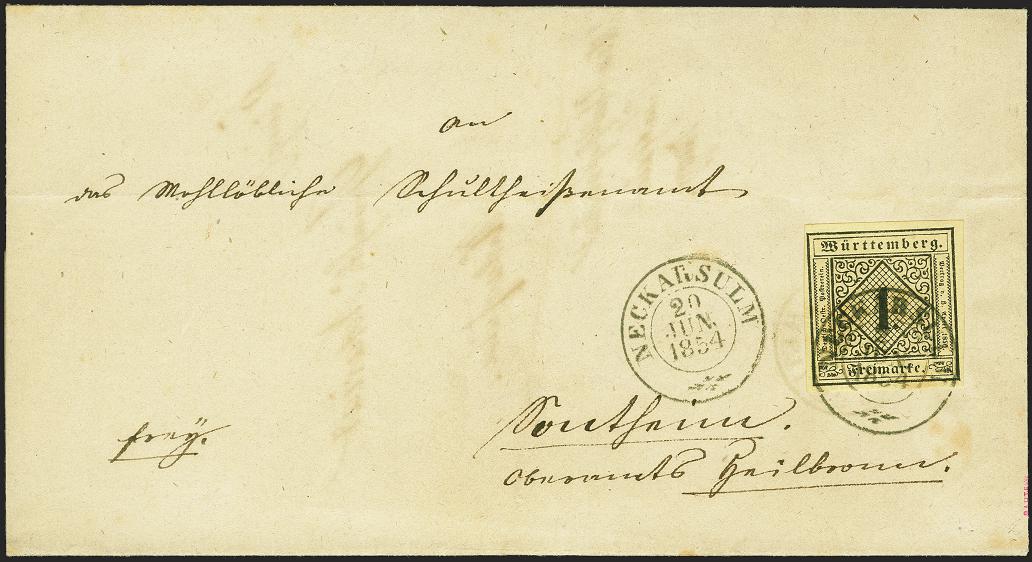 An
das Wohllöbliche Schultheißenamt
Württemberg.
1
Freimarke.
NECKARSULM
20
JUN.
1854
1854
Sontheim.
frey.
Oberamts Heilbronn.